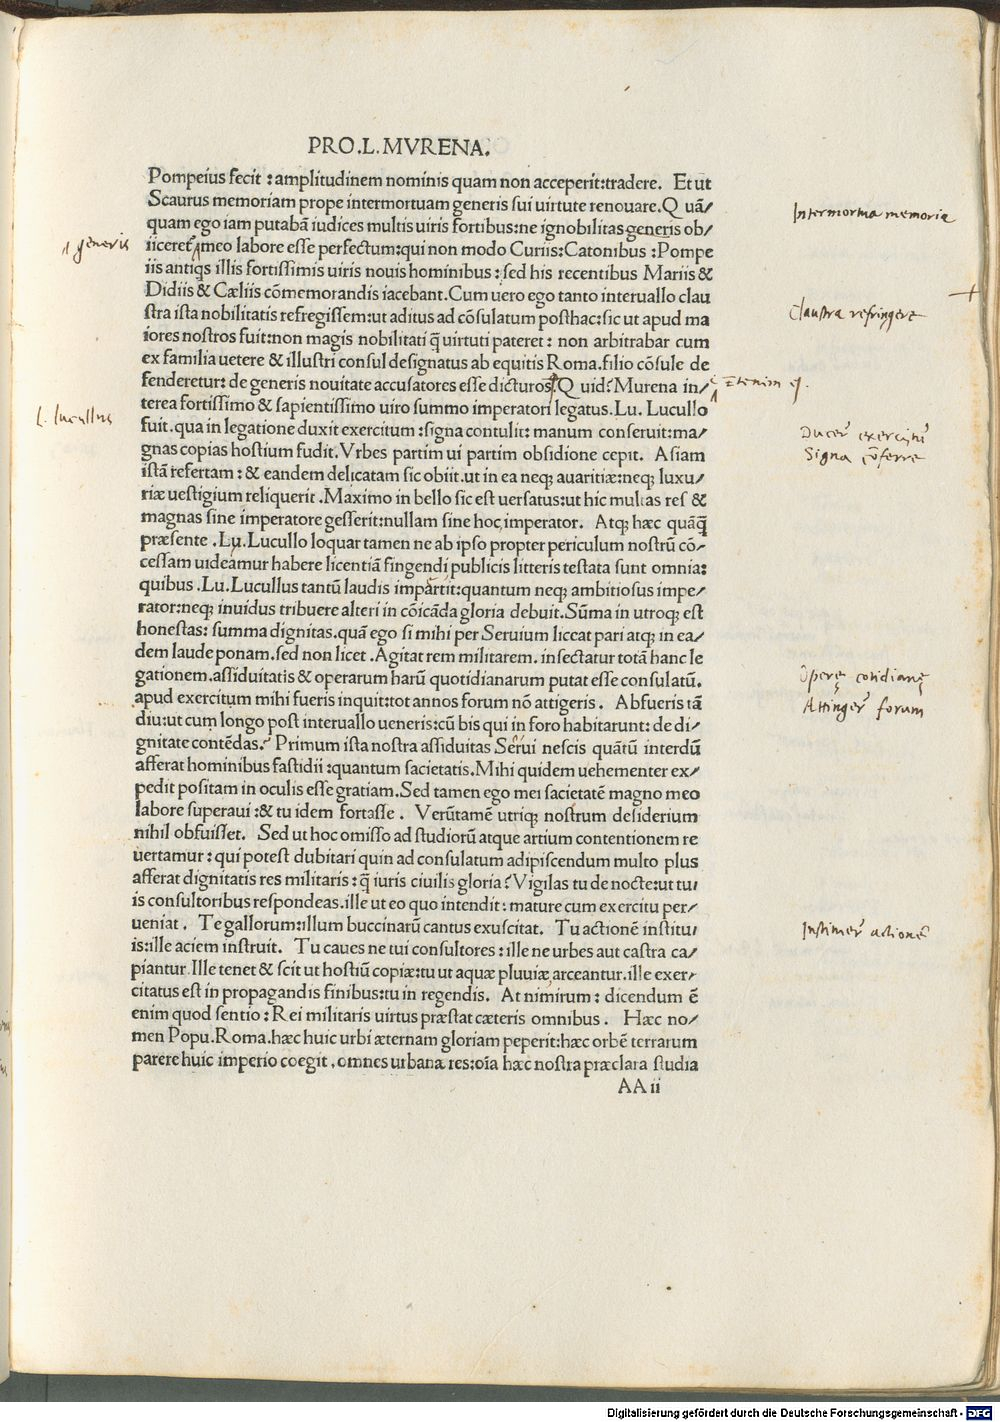 PRO.L.MVRENA.
Pompeius fecit : amplitudinem nominis quam non acceperit:tradere. Et ut
Scaurus memoriam prope intermortuam generis sui uirtute renouare.Q uā/
Intermortua memoria
quam ego iam putabā iudices multis uiris fortibus:ne ignobilitas generis ob/
generis
iiceret meo labore esse perfectum:qui non modo Curiis:Catonibus :Pompe
iis antiq̄s illis fortissimis uiris nouis hominibus : sed his recentibus Mariis &
Didiis & Cæliis cōmemorandis iacebant.Cum uero ego tanto interuallo clau
stra ista nobilitatis refregissem:ut aditus ad cōsulatum posthac:sic ut apud ma
Claustra refringere
iores nostros fuit:non magis nobilitati q̄ uirtuti pateret : non arbitrabar cum
ex familia uetere & illustri consul designatus ab equitis Roma.filio cōsule de
fenderetur: de generis nouitate accusatores esse dicturos.Q uid? Murena in/
terea fortissimo & sapientissimo uiro summo imperatori legatus.Lu. Lucullo
L. lucullus
fuit.qua in legatione duxit exercitum :signa contulit: manum conseruit:ma/
Ducer̄ exercitū
gnas copias hostium fudit.Vrbes partim ui partim obsidione cepit. Asiam
Signa cōferre
istā refertam : & eandem delicatam sic obiit.ut in ea neq; auaritiæ:neq; luxu/
riæ uestigium reliquerit .Maximo in bello sic est uersatus:ut hic multas res &
magnas sine imperatore gesserit:nullam sine hoc imperator. Atq; hæc quāq̄
præsente .Lu.Lucullo loquar tamen ne ab ipso propter periculum nostrū cō/
cessam uideamur habere licentiā fingendi publicis litteris testata sunt omnia:
quibus .Lu.Lucullus tantū laudis impartit:quantum neq; ambitiosus impe/
rator:neq; inuidus tribuere alteri in cōicāda gloria debuit.Sūma in utroq; est
honestas: summa dignitas.quā ego si mihi per Seruium liceat pari atq; in ea/
dem laude ponam.sed non licet .Agitat rem militarem. insectatur totā hanc le
gationem.assiduitatis & operarum harū quotidianarum putat esse consulatū.
Operę cotidianę
apud exercitum mihi fueris inquit:tot annos forum nō attigeris. Abfueris tā
Attinger̄ forum
diu:ut cum longo post interuallo ueneris:cū bis qui in foro habitarunt: de di/
gnitate contēdas. Primum ista nostra assiduitas Serui nescis quātū interdū
afferat hominibus fastidii :quantum sacietatis.Mihi quidem uehementer ex/
pedit positam in oculis esse gratiam.Sed tamen ego mei sacietatē magno meo
labore superaui :& tu idem fortasse . Verūtamē utriq; nostrum desiderium
nihil obfuisset. Sed ut hoc omisso ad studiorū atque artium contentionem re
uertamur : qui potest dubitari quin ad consulatum adipiscendum multo plus
afferat dignitatis res militaris : q̄ iuris ciuilis gloria? Vigilas tu de nocte:ut tu/
is consultoribus respondeas.ille ut eo quo intendit : mature cum exercitu per/
ueniat . Te gallorum:illum buccinarū cantus exuscitat. Tu actionē institu/
Instituer̄ actionē
is:ille aciem instruit. Tu caues ne tui consultores : ille ne urbes aut castra ca/
piantur Ille tenet & scit ut hostiū copiæ:tu ut aquæ pluuiæ arceantur.ille exer/
citatus est in propagandis finibus:tu in regendis. At nimirum : dicendum ē
enim quod sentio : Rei militaris uirtus præstat cæteris omnibus . Hæc no/
men Popu.Roma.hæc huic urbi æternam gloriam peperit:hæc orbē terrarum
parere huic imperio coegit .omnes urbana res:oīa hæc nostra præclara studia
AA ii
Digitalisierung gefördert durch die Deutsche Forschungsgemeinschaft - DFG